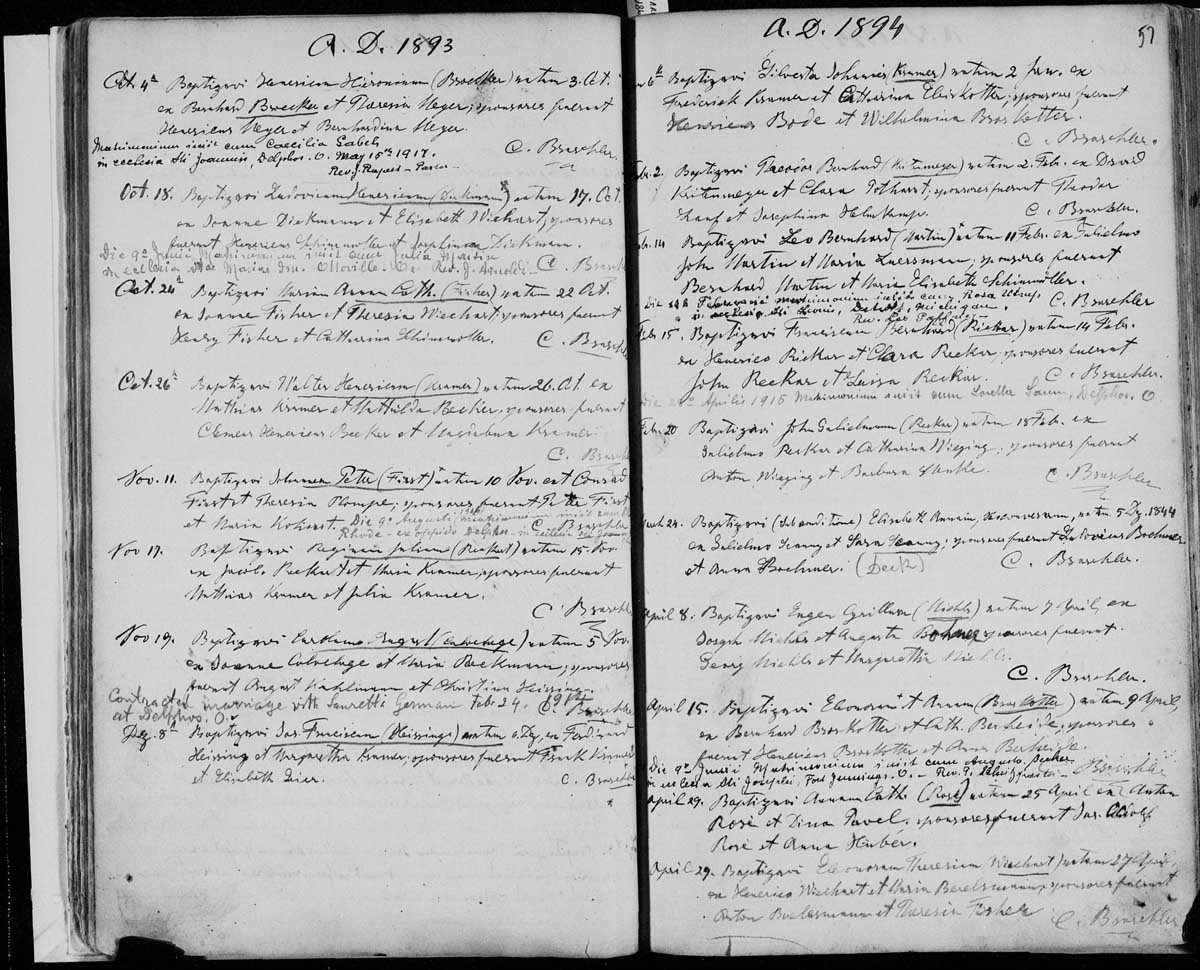 A. D. 1893
Oct. 4ª Baptizavi Henericum Hieronimum (Broecker) natum 3. Oct.
ex Bernhard Broecker et Theresia Meyer; sponsores fuerunt
Henericus Meyer et Bernhardina Meyer.
Matrimonium iniit cum Caecilia Gabel
in ecclesia Sti Joannis, Delphos. O. May 15th 1917.
Rev. J. Rupert - Pastor
C. Braschler
Oct. 18. Baptizavi Ludovicum Henericum (Dickmann) natum 17. Oct.
ex Joanne Dickmann et Elizabeth Wiechart; sponsores
fuerunt Henericus Schimmoller et Josephina Dickmann.
Die 9ª Junii Matrimonium iniit cum Julia Martin
in ecclesia Ottoville. O. Rev. J. Arnoldi
C. Brasch
Oct. 24ª Baptizavi Mariam Annam Cath. (Fisher) natam 22 Oct.
ex Joanne Fisher et Theresia Wiechart; sponsores fuerunt
Henry Fisher et Catharina Schimmoller.
C. Braschler
Oct. 26ª Baptizavi Walter Henericum (Kramer) natum 26. Oct. ex
Mathias Kramer et Mathilda Becker, sponsores fuerunt
Clemens Henericus Becker et Magdalena Kramer.
C. Brasch
Nov. 11. Baptizavi Johannem Peter (Först) natum 10 Nov. ex Conrad
Först et Theresia Plompe; sponsores fuerunt Peter Först
et Maria
Die 9ª Augusti matrimonium iniit cum
Rhode - ex oppido Delphos - in Ecclesia
C. Braschler
Nov 17. Baptizavi Reginam Juliam (Reckart) natam 15. Nov
ex Jacob. Reckart et Maria Kramer; sponsores fuerunt
Mathias Kramer et Julia Kramer.
C. Braschler
Nov 19. Baptizavi Carolum August (Calvelage) natum 5 Nov.
ex Joanne Calvelage et Maria Beckmann; sponsores
fuerunt August Kahlmann et Christina Heissing.
Contracted marriage with Lauretta German Feb 24.
at Delphos. O.
C. Braschler
Dez. 8ª Baptizavi Jos. Franciscum (Heissing) natum 6. Dez. ex Ferdinand
Heissing et Margaretha Kramer; sponsores fuerunt Frank Kramer
et Elizabeth
C. Braschler
A. D. 1894
57
6ª Baptizavi Silvester Johannes (Kramer) natum 2 Jan. ex
Frederick Kramer et Catharina Eliskotter; sponsores fuerunt
Henericus Bode et Wilhelmina Broskotter.
C. Braschler.
Febr. 2. Baptizavi Theodor Bernhard (Keitemeyer) natum 2. Feb. ex David
Keitemeyer et Clara Pothast; sponsores fuerunt Theodor
et Josephina Helmkamp.
C. Braschler.
Febr. 14 Baptizavi Leo Bernhard (Martin) natum 11 Febr. ex Gulielmo
John Martin et Maria Luersman; sponsores fuerunt
Bernhard Martin et Maria Elisabeth Schimmoller.
Die Februarii matrimonium iniit cum Rosa
in ecclesia Sti Leonis, Detroit, Michigan.
C. Braschler
Febr 15. Baptizavi Franciscum Bernhard (Recker) natum 14 Febr.
ex Henerico Recker et Clara Recker, sponsores fuerunt
John Recker et Luisa Recker.
C. Braschler.
Aprilis 1915 Matrimonium iniit cum Loretta Delphos. O.
Febr. 20 Baptizavi John Gulielmum (Recker) natum 18 Feb. ex
Gulielmo Recker et Catharina Wieging; sponsores fuerunt
Anton Wieging et Barbara
C. Braschler
March 24. Baptizavi (sub conditione) Elisabeth Annam, conversam, nata 5 Dez. 1844
ex Gulielmo et Sara sponsores fuerunt Ludovicus Boehmer
et Anna Boehmer. (Deck)
C. Braschler.
April 8. Baptizavi Eugen Cyrillum (Miehls) natum 7 April, ex
Joseph Miehls et Augusta Bohmer, sponsores fuerunt
Georg Miehls et Margaretha Miehls.
C. Braschler.
April 15. Baptizavi Eleonoram Annam (Broskotter) natam 9 April
ex Bernhard Broskotter et Cath. Berheide, sponsores
fuerunt Henericus Broskotter et Anna Berheide.
Die 9ª Junii Matrimonium iniit cum Augusto Becker
in ecclesia Sti Josephi, Fort Jennings. O. - Rev.
Braschler
April 29. Baptizavi Annam Cath. (Rose) natam 25 April ex Anton
Rosè et Dina Pavel, sponsores fuerunt Jos. Adolf
Rosè et Anna Huber.
April 29. Baptizavi Eleonoram Theresiam (Wiechart) natam 27 April,
ex Henerico Wiechart et Maria Berelsmann; sponsores fuerunt
Anton Berelsmann et Theresia Fisher
C. Braschler